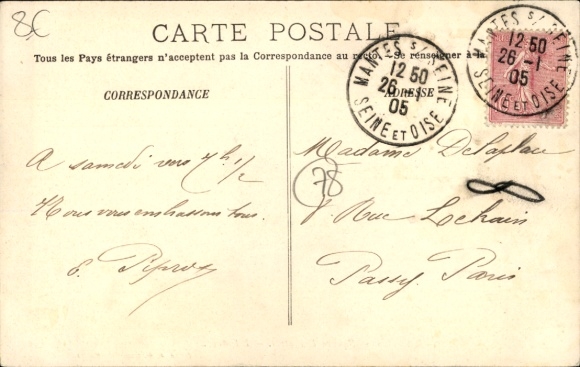 8€
CARTE POSTALE
Tous les Pays étrangers n'acceptent pas la Correspondance au recto. - Se renseigner à la
CORRESPONDANCE
ADRESSE
MANTES S/ SEINE
12 50
26 -1
05
SEINE ET OISE
MANTES S/ SEINE
12 50
26 -1
05
SEINE ET OISE
A samedi vers 7h 1/2
Nous vous embrassons tous.
Madame Delaplace
78
Rue Lekain
Passy. Paris